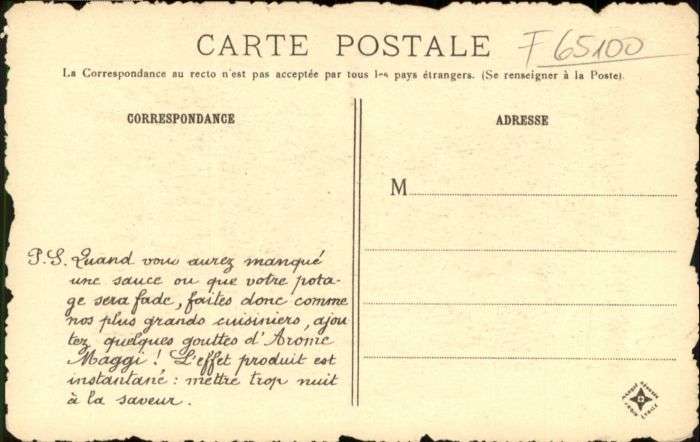 CARTE POSTALE
F 65100
La Correspondance au recto n'est pas acceptée par tous les pays étrangers. (Se renseigner à la Poste).
CORRESPONDANCE
ADRESSE
M
P.S. Quand vous aurez manqué
une sauce ou que votre pota-
ge sera fade, faites donc comme
nos plus grands cuisiniers, ajou
tez quelques gouttes d'Arome
Maggi ! L'effet produit est
instantané : mettre trop nuit
à la saveur.